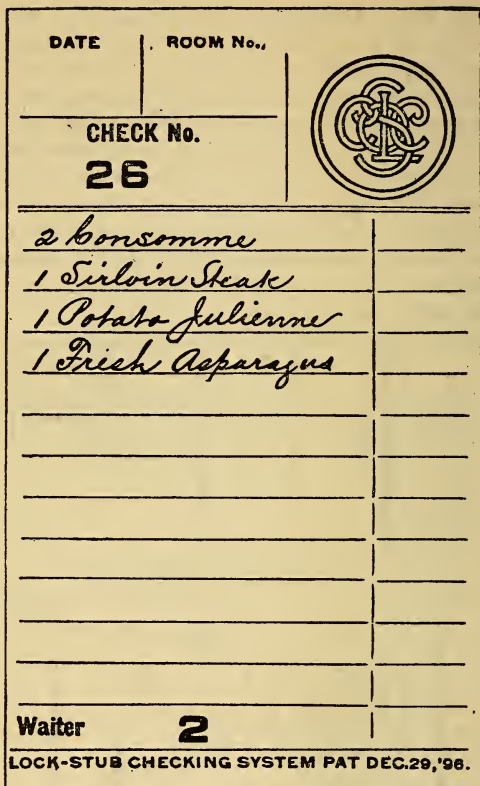 DATE
ROOM No.,
CHECK No.
26
2 Consomme
1 Sirloin Steak
1 Potato Julienne
1 Fresh Asparagus
Waiter 2
LOCK-STUB CHECKING SYSTEM PAT DEC.29,'96.